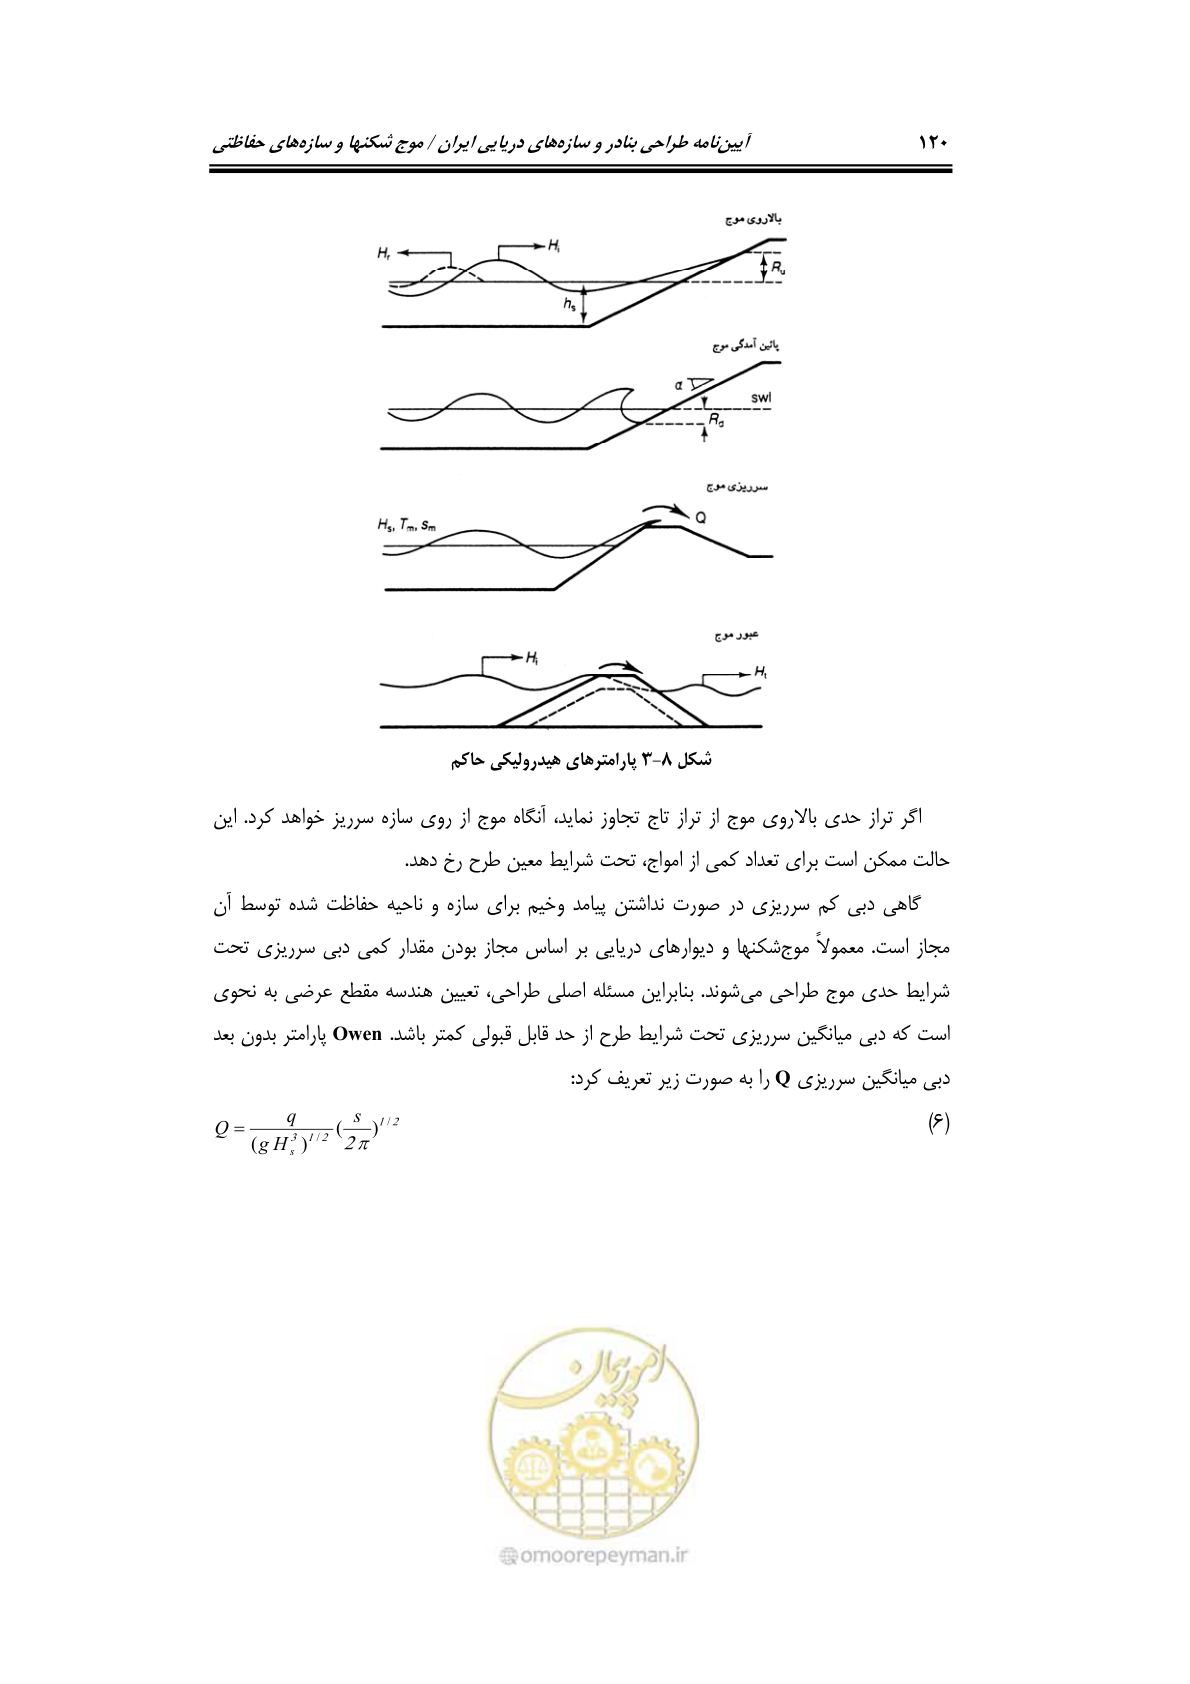 ۱۲۰ آیین‌نامه طراحی بنادر و سازه‌های دریایی ایران / موج شکنها و سازه‌های حفاظتی
بالاروی موج
Hr Hi Ru
hs
پائین آمدگی موج
α swl
Rd
سرریزی موج
Hs, Tm, sm Q
عبور موج
Hi Ht
شکل ۸-۳ پارامترهای هیدرولیکی حاکم
اگر تراز حدی بالاروی موج از تراز تاج تجاوز نماید، آنگاه موج از روی سازه سرریز خواهد کرد. این
حالت ممکن است برای تعداد کمی از امواج، تحت شرایط معین طرح رخ دهد.
گاهی دبی کم سرریزی در صورت نداشتن پیامد وخیم برای سازه و ناحیه حفاظت شده توسط آن
مجاز است. معمولاً موج‌شکنها و دیوارهای دریایی بر اساس مجاز بودن مقدار کمی دبی سرریزی تحت
شرایط حدی موج طراحی می‌شوند. بنابراین مسئله اصلی طراحی، تعیین هندسه مقطع عرضی به نحوی
است که دبی میانگین سرریزی تحت شرایط طرح از حد قابل قبولی کمتر باشد. Owen پارامتر بدون بعد
دبی میانگین سرریزی Q را به صورت زیر تعریف کرد:
(۶) Q = q / (g H_s^3)^{1/2} (s / 2π)^{1/2}
امور پیمان
omoorepeyman.ir